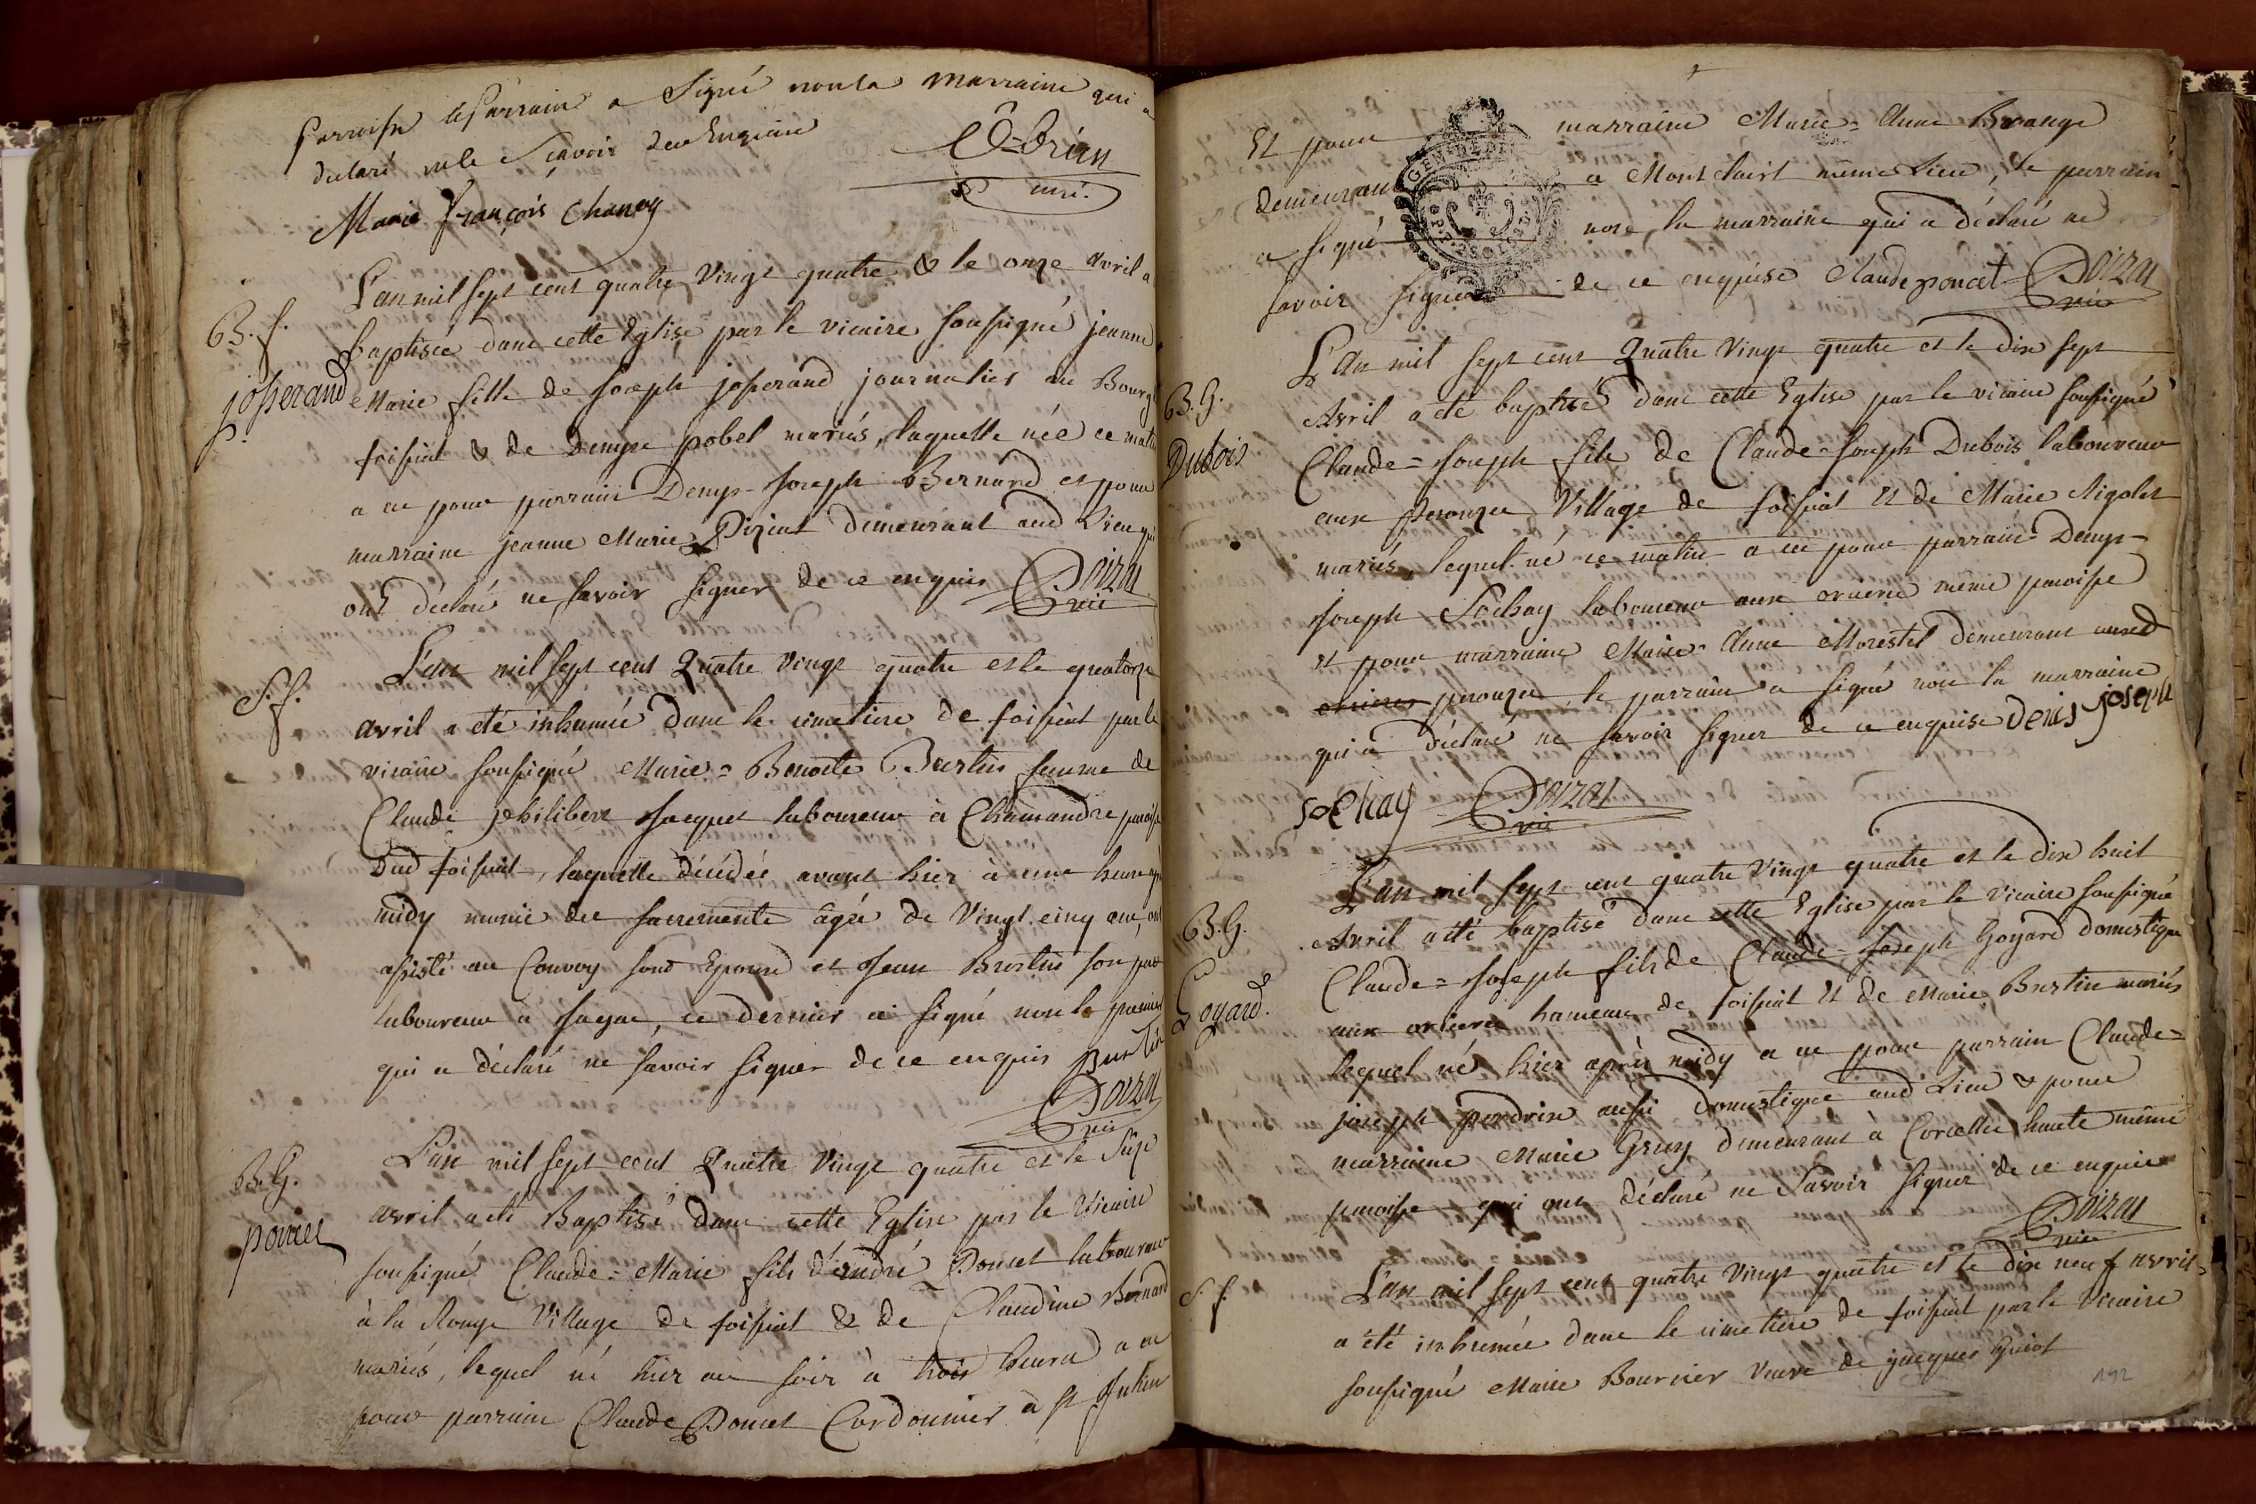 parroisse le parrain a signé non la marraine qui a
déclaré ne le sçavoir de ce enquise
Obrien
curé.
Marie françois Chanoy
B. f.
joſserand
L'an mil sept cent quatre vingt quatre & le onze avril a
baptisée dans cette Eglise par le vicaire soussigné jeanne
Marie fille de joseph joſserand journalier au Bourg
foissiat & de Denyse pobel mariés, laquelle née ce matin
a eu pour parrain Denys-joseph Bernard et pour
marraine jeanne Marie Piziat demeurant aud Lieu qui
ont déclaré ne savoir signer de ce enquis Doizat
vic
S. f.
L'an mil sept cent Quatre vingt quatre et le quatorze
avril a été inhumée dans le cimetiere de foissiat par le
vicaire soussigné Marie = Benoite Burtin femme de
Claude philibert jacquet laboureur à Chamandre paroisse
Dud foissiat, laquelle décédée avant hier à une heure après
midy munie des sacrements âgée de vingt cinq ans, ont
assisté au Convoy sond Epoux et Jean Burtin son pere
laboureur a jayac, ce dernier a signé non le premier
qui a déclaré ne savoir signer de ce enquis Burtin
Doizat
vic
B. G.
poncet
L'an mil sept cent Quatre vingt quatre et le Seize
avril a été Baptisé dans cette Eglise par le vicaire
soussigné Claude = Marie fils d'andré Poncet laboureur
à la Rouge village de foissiat & de Claudine Bernard
mariés, lequel né hier au soir à trois heures a eu
pour parrain Claude Poncet Cordonnier à St julien
Et pour marraine Marie = Anne Brange
GEN
demeurant a Mont claist même Lieu, le parrain
a signé non la marraine qui a déclaré ne
savoir signer de ce enquise Claude poncet Doizat
vic
B. G.
Dubois
L'an mil sept cent Quatre vingt quatre et le dix sept
Avril a été baptisé dans cette Eglise par le vicaire soussigné
Claude = joseph fils de Claude = joseph Dubois laboureur
aux perouzes village de foissiat Et de Marie Rigolet
mariés, lequel né ce matin a eu pour parrain Denys-
joseph Sochay laboureur aux orcieres même paroisse
et pour marraine Marie = Anne Morestel demeurant auxd
perouzes, le parrain a signé non la marraine
qui a déclaré ne savoir signer de ce enquise Denis joseph
sochay Doizat
vic
B. G.
Goyard.
L'an mil sept cent quatre vingt quatre et le dix huit
Avril a été baptisé dans cette Eglise par le vicaire soussigné
Claude = joseph fils de Claude = joseph Goyard domestique
aux orcieres hameau de foissiat Et de Marie Burtin mariés
lequel né hier après midy a eu pour parrain Claude =
joseph perdrix aussi domestique aud Lieu & pour
marraine Marie Gruy demeurant à Corcelles haute même
paroisse qui ont déclaré ne savoir signer de ce enquis
Doizat
vic
S. f.
L'an mil sept cent quatre vingt quatre et le dix neuf avril
a été inhumée dans le cimetiere de foissiat par le vicaire
soussigné Marie Bournier veuve de jacques Guiot
192